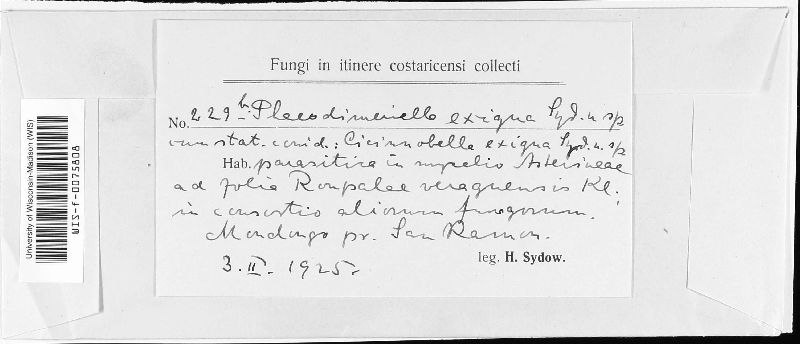 Fungi in itinere costaricensi collecti
No. 229b. Plecodimeriella exigua Syd. n. sp
cum stat. conid.: Cicinnobella exigua Syd. n. sp
Hab. parasitica in mycelio Asterineae
ad folia Roupalae veraguensis Kl.
in consortio aliorum fungorum.
Mondongo pr. San Ramon.
3. II. 1925.
leg. H. Sydow.
University of Wisconsin-Madison (WIS)
WIS-f-0075808